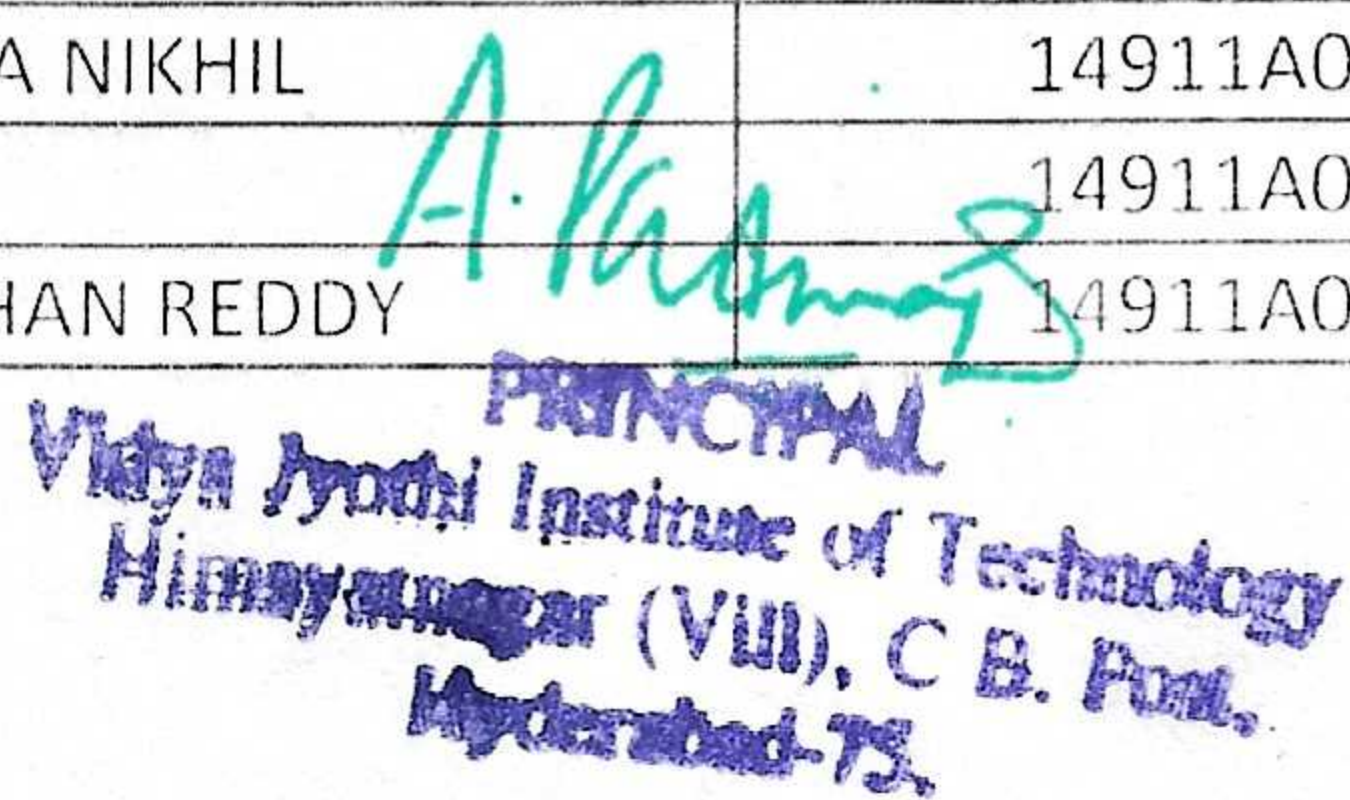 A NIKHIL 14911A0
14911A0
HAN REDDY 14911A0
A. Padmaja
PRINCIPAL
Vidya Jyothi Institute of Technology
Himayatnagar (Vill), C B. Post.
Hyderabad-75.